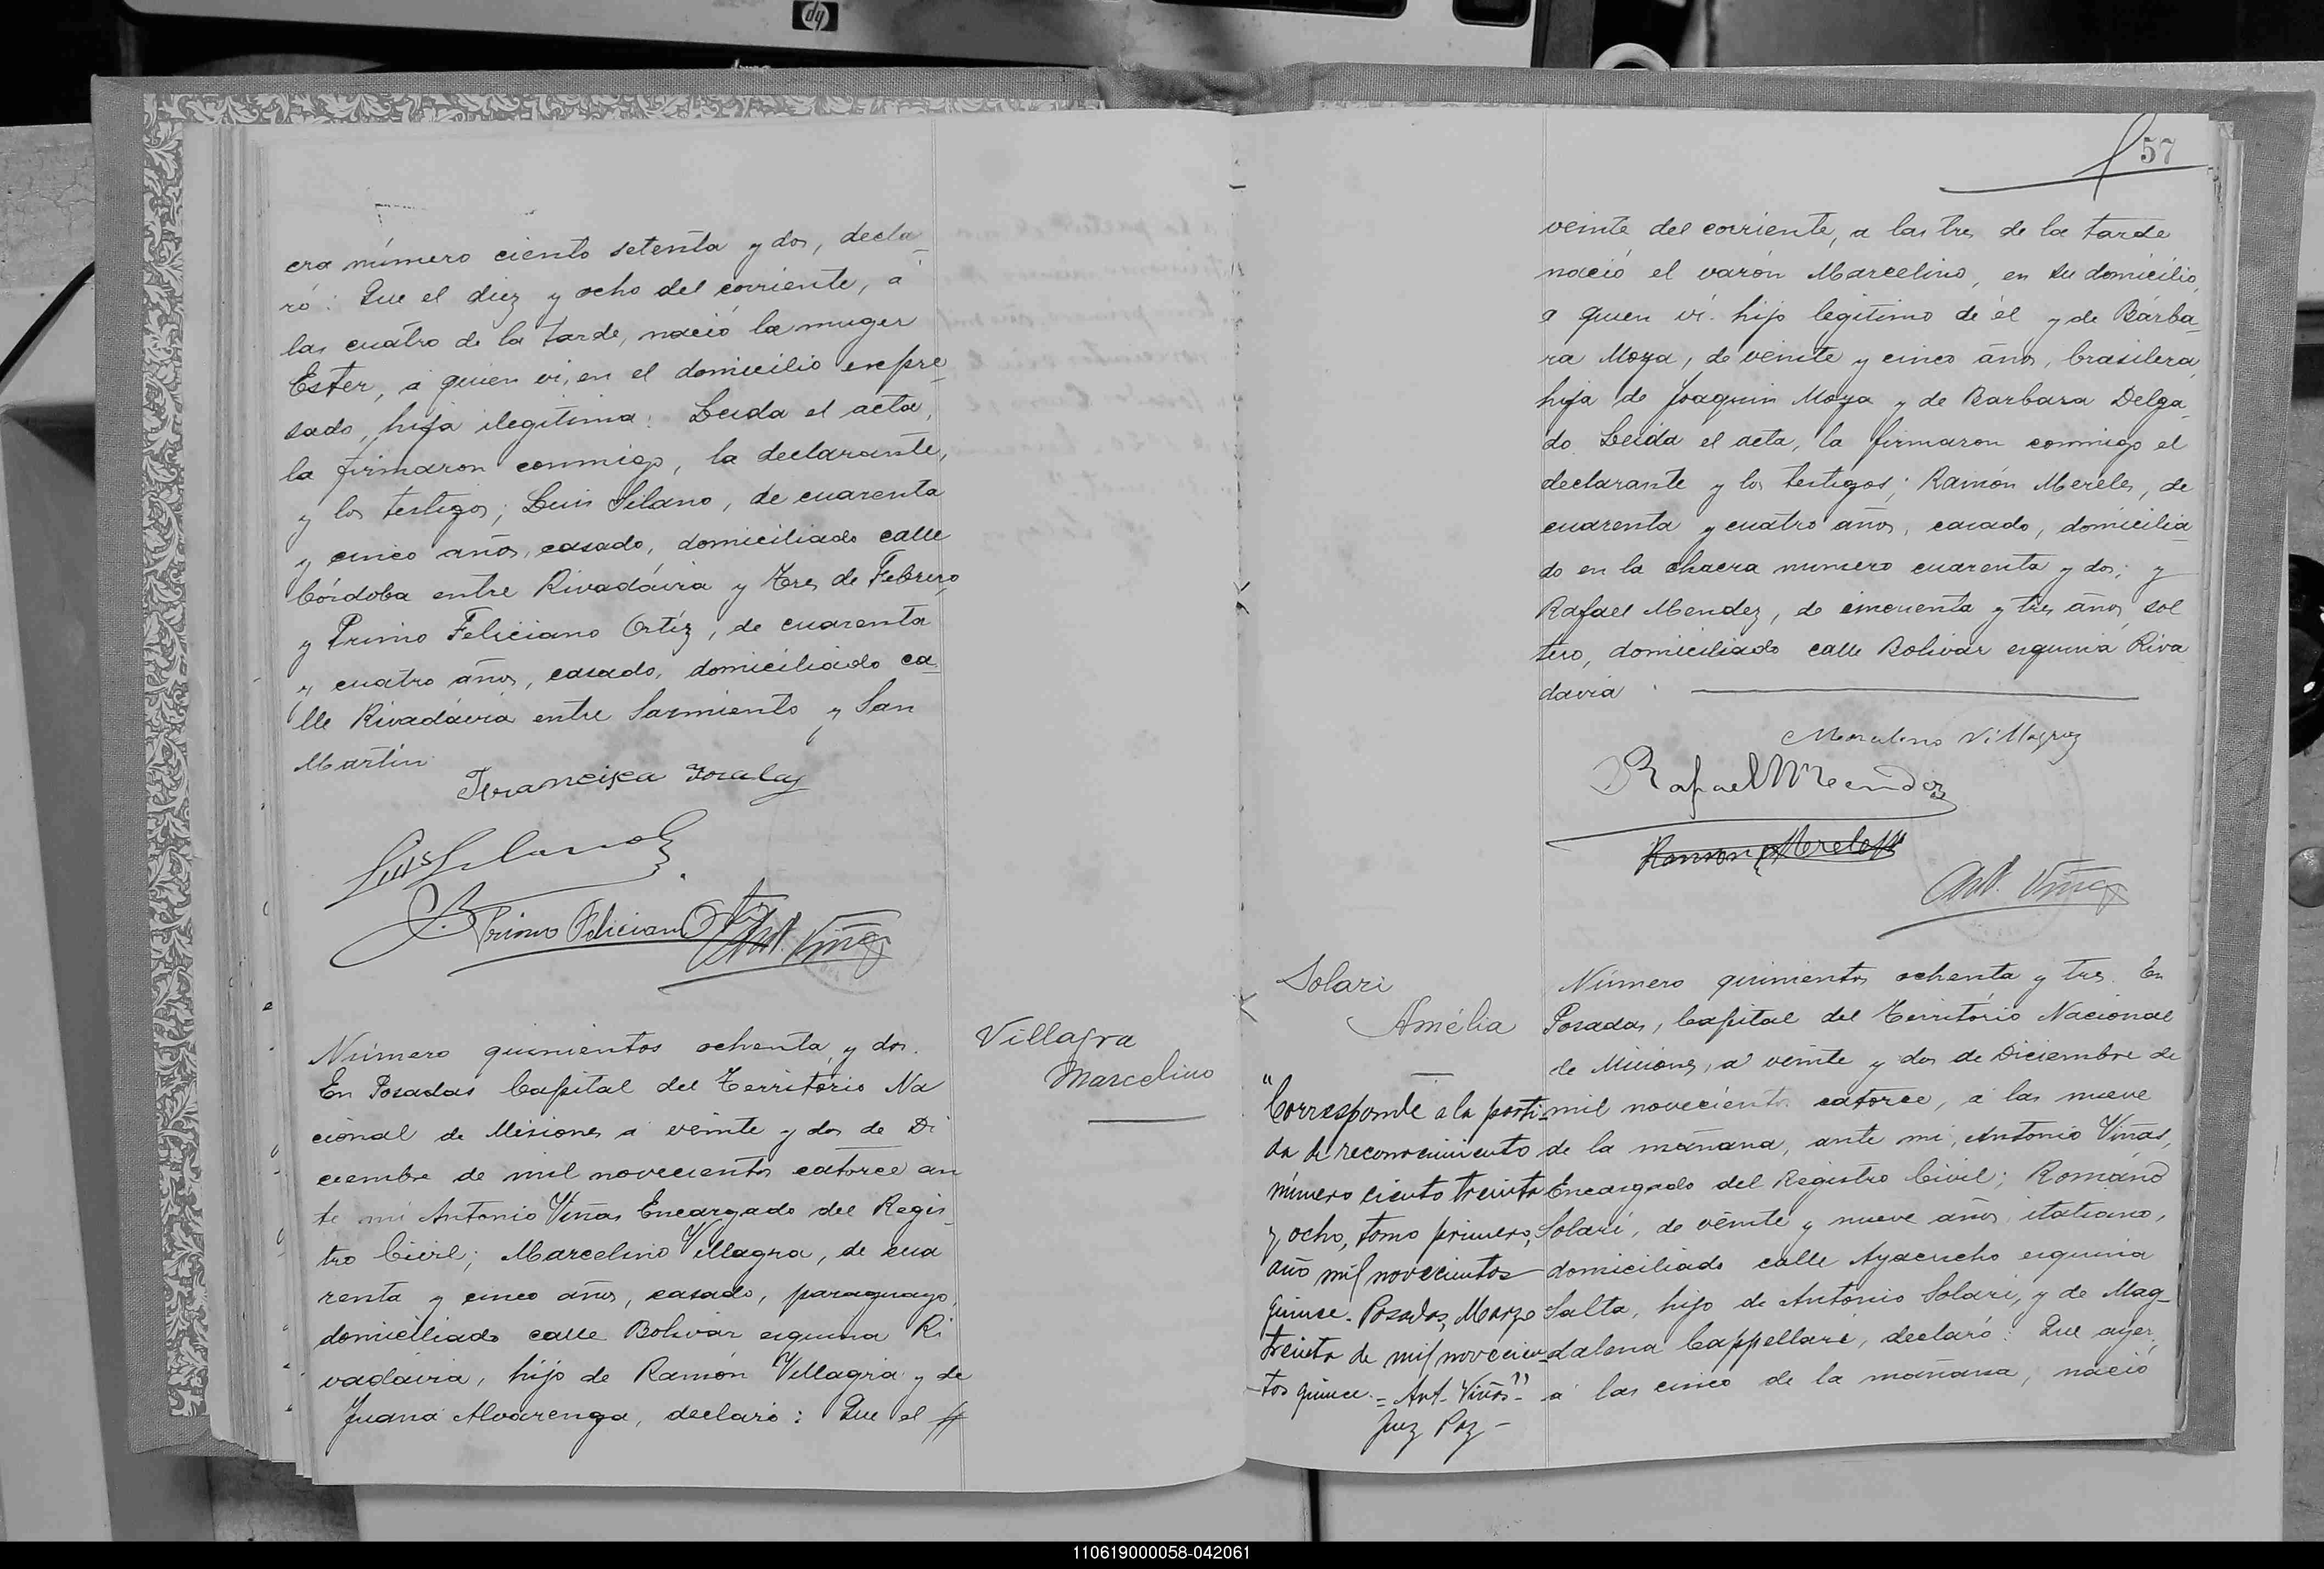 cra número ciento setenta y dos, decla-
ró: Que el diez y ocho del corriente, á
las cuatro de la tarde, nació la muger
Ester, á quien vi, en el domicilio expre-
sado, hija ilegítima. Leida el acta,
la firmaron conmigo, la declarante,
y los testigos; Luis Silano, de cuarenta
y cinco años, casado, domiciliado calle
Córdoba entre Rivadávia y Tres de Febrero
y Primo Feliciano Ortíz, de cuarenta
y cuatro años, casado, domiciliado ca-
lle Rivadávia entre Sarmiento y San
Martín.
Francisca
Luis Silano
Primo Feliciano Ortiz
Ant. Viñas
Villagra
Marcelino
Número quinientos ochenta y dos.
En Posadas Capital del Territorio Na
cional de Misiones á veinte y dos de Di
ciembre de mil novecientos catorce an
te mi Antonio Viñas Encargado del Regis-
tro Civil; Marcelino Villagra, de cua
renta y cinco años, casado, paraguayo,
domiciliado calle Bolivar esquina Ri
vadávia, hijo de Ramón Villagra y de
Juana Alvarenga, declaró: Que el
57
veinte del corriente, a las tres de la tarde
nació el varón Marcelino, en su domicilio,
a quien vi. hijo legítimo de él y de Bárba-
ra Moya, de veinte y cinco años, brasilera,
hija de Joaquin Moya y de Barbara Delga-
do. Leida el acta, la firmaron conmigo el
declarante y los testigos; Ramón Mereles, de
cuarenta y cuatro años, casado, domicilia-
do en la chacra numero cuarenta y dos; y
Rafael Mendez, de cincuenta y tres años, sol
tero, domiciliado calle Bolivar esquina Riva
davia.
Marcelino Villagra
Rafael Mendez
Ramon Mereles
Ant. Viñas
Solari
Amélia
"Corresponde a la parti-
da de reconocimiento
número ciento treinta
y ocho, tomo primero,
año mil novecientos
quince. Posadas, Marzo
treinta de mil novecien-
tos quince. = Ant. Viñas"-
Juez Paz -
Número quinientos ochenta y tres. En
Posadas, Capital del Território Nacional
de Misiones, a veinte y dos de Diciembre de
mil novecientos catorce, á las nueve
de la mañana, ante mi, Antonio Viñas,
Encargado del Registro Civil; Romano
Solari, de veinte y nueve años, italiano,
domiciliado calle Ayacucho esquina
Salta, hijo de Antonio Solari, y de Mag-
dalena Cappellari, declaró: Que ayer,
á las cinco de la mañana, nació
110619000058-042061